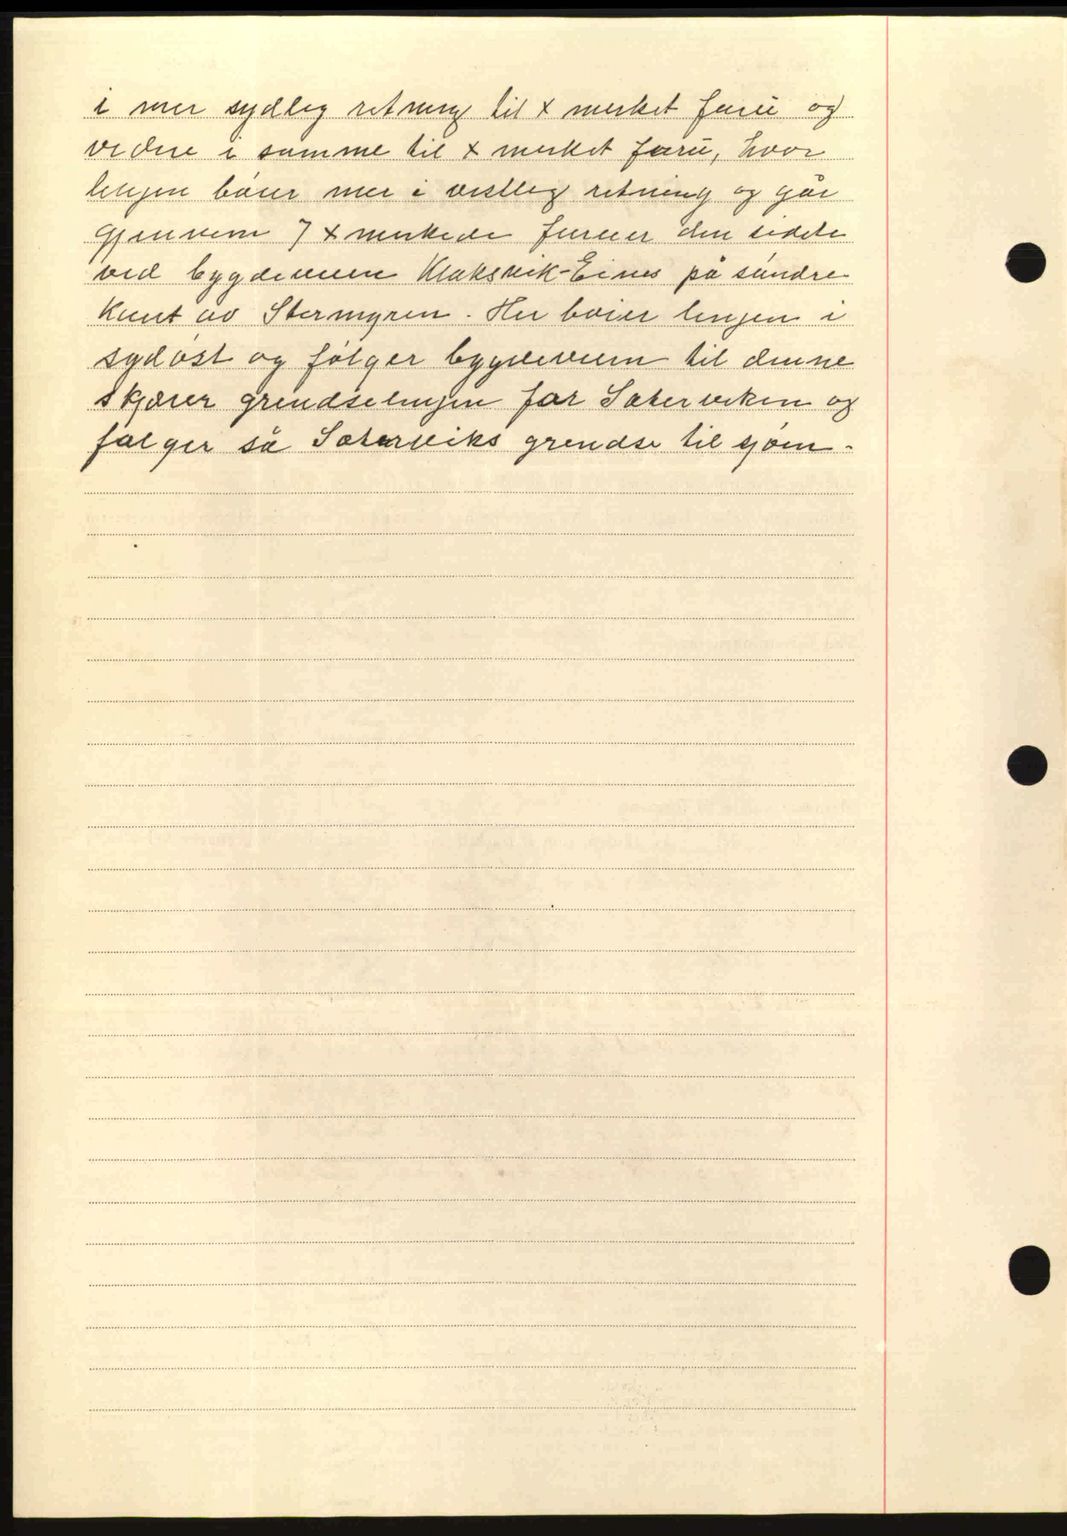 i mer sydlig retning til x merket furu og
videre i samme til x merket furu, hvor
linjen bóier mer i vestlig retning og går
gjennem 7 x merkede furuer den sidste
ved bygdeveien Klaksvik-Eines på sóndre
kant av Stormyren. Her boier linjen i
sydóst og fólger bygdeveien til denne
skjærer grendselinjen for Sæterviken og
fólger så Sæterviks grendse til sjóen.